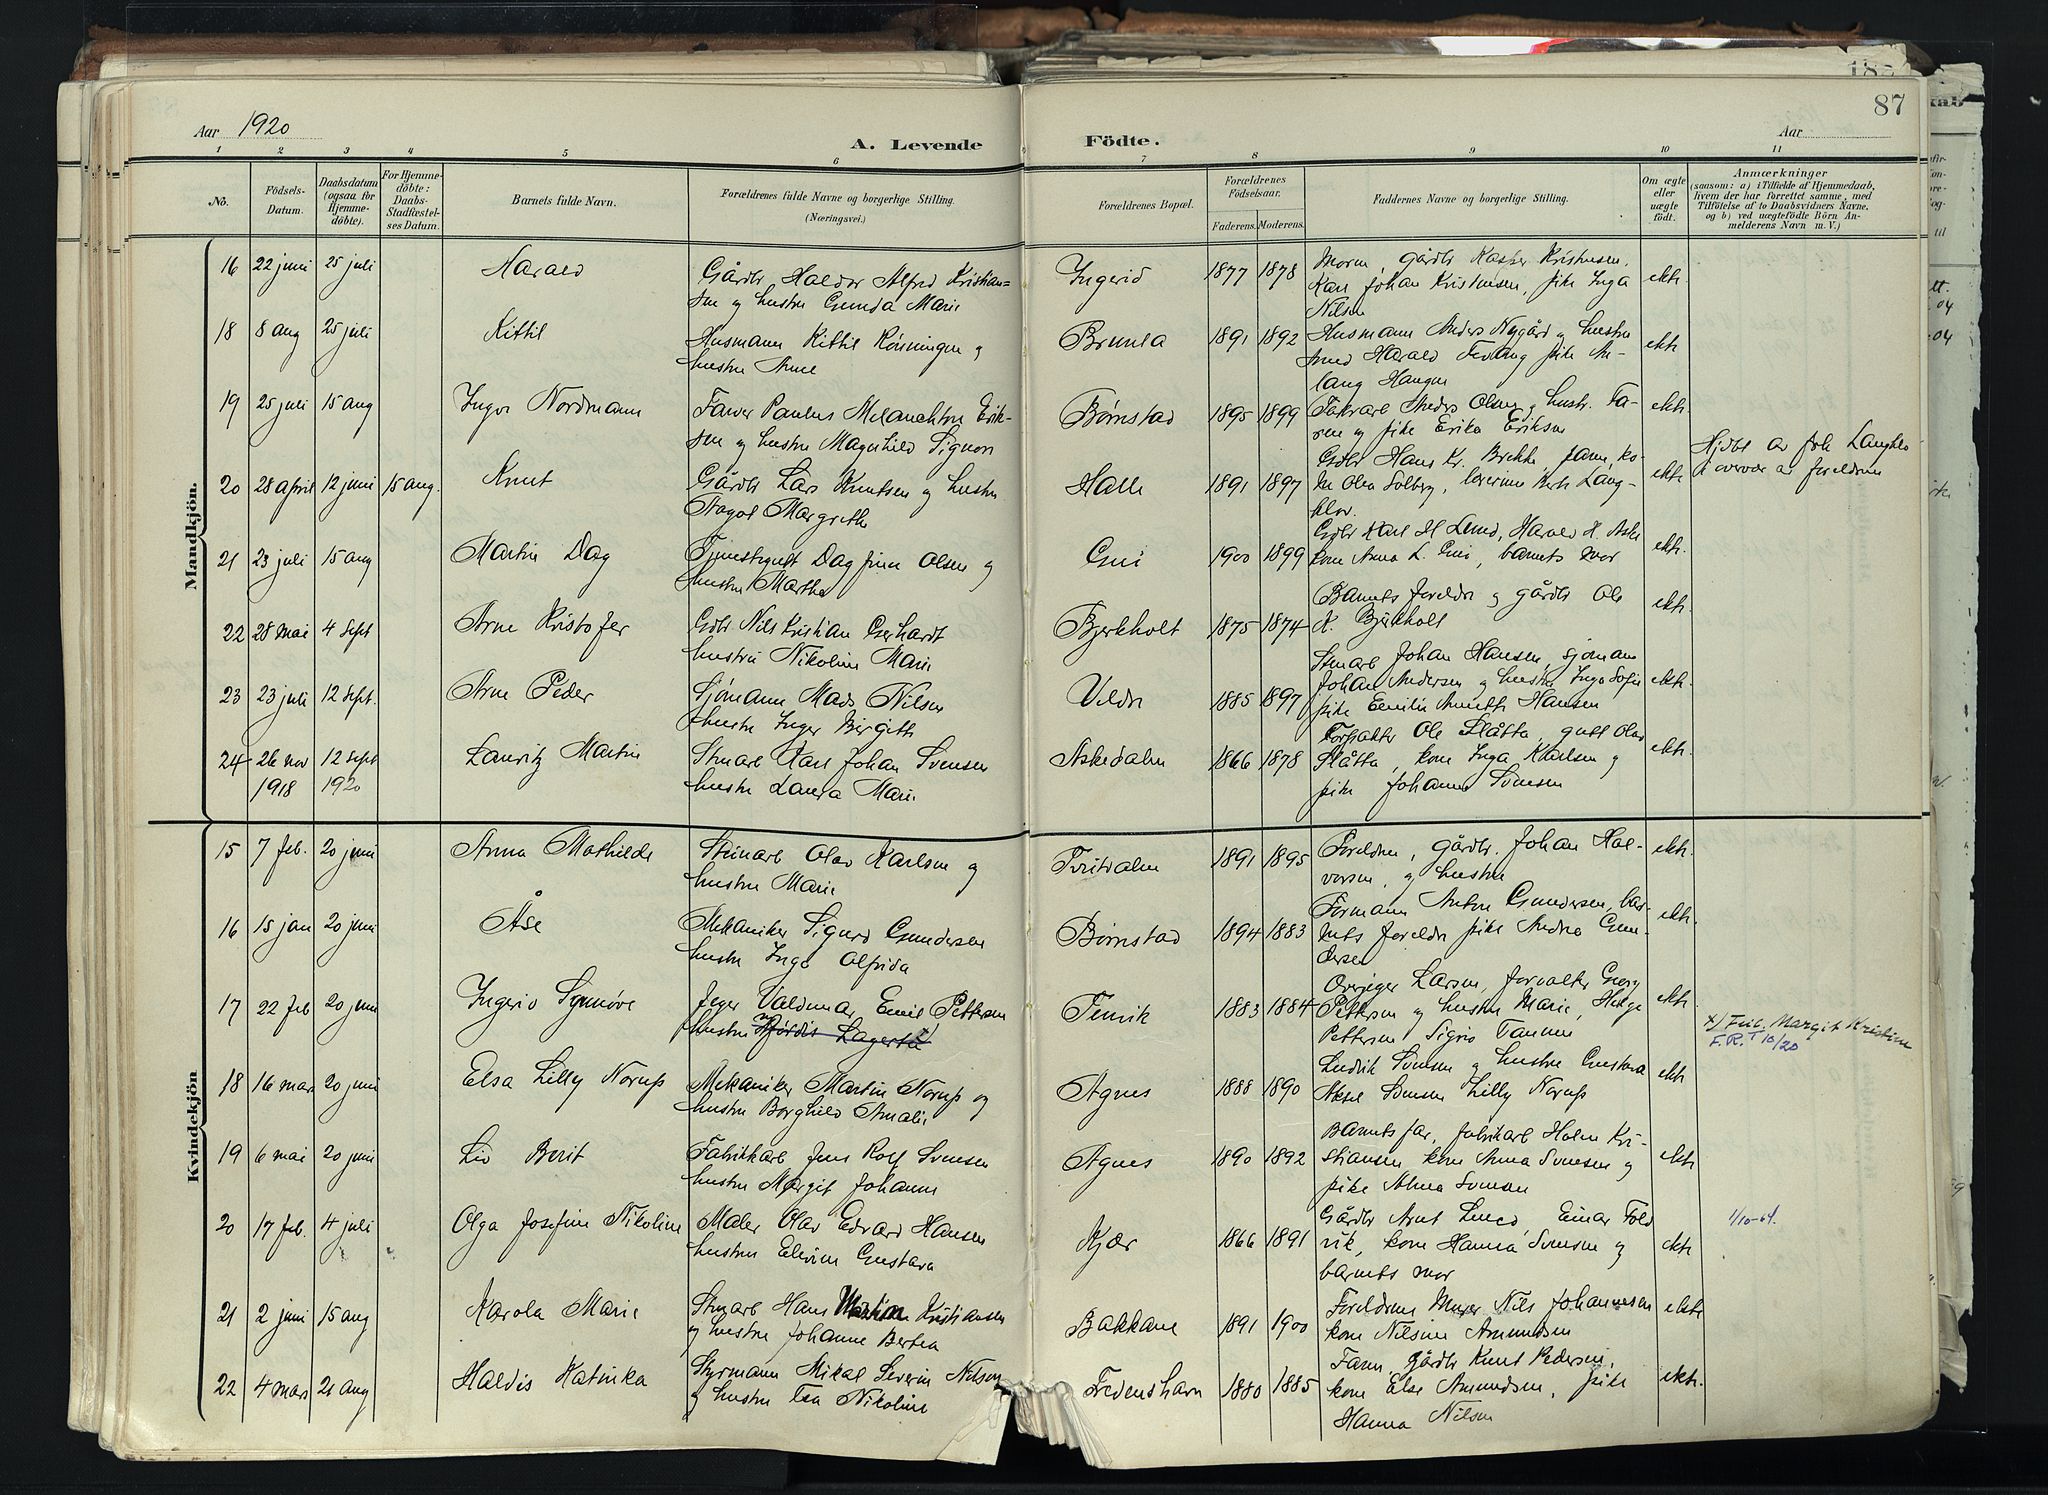 Aar 1920
A. Levende
Födte.
Aar
87
1 2 3 4 5 6 7 8 9 10 11
No.
Födsels-
Datum.
Daabsdatum
(ogsaa for
Hjemme-
döbte).
For Hjemme-
döbte:
Daabs-
Stadfæstel-
ses Datum.
Barnets fulde Navn.
Forældrenes fulde Navne og borgerlige Stilling.
(Næringsvei.)
Forældrenes Bopæl.
Forældrenes
Födselsaar.
Faderens. Moderens.
Faddernes Navne og borgerlige Stilling.
Om ægte
eller
uægte
födt.
Anmærkninger
(saasom: a) i Tilfælde af Hjemmedaab,
hvem der har forrettet samme, med
Tilföielse af to Daabsvidners Navne.
og b) ved uægtefödte Börn An-
melderens Navn m. V.)
Mandkjön.
16 22 juni 25 juli Harald Gårdbr Haldor Alfred Kristian= Ingerid 1877 1878 Moren, gårdb Kasper Kristensen, ekte
sen og hustru Gunda Marie Karl Johan Kristensen, pike Inga
Nilsen
18 8 aug 25 juli Kittil Husmann Kittil Rönningen og Brunla 1891 1892 Husmann Anders Nygård og hustru ekte
hustru Anne Harald Fevang pike
19 25 juli 15 aug Nordmann Paulus Melanchton Erik- Börnstad 1895 1899 Fabrarb Anders Olsen og hustr. Ka- ekte
sen og hustru Magnhild Signora ren og pike Erika Eriksen
20 28 april 12 juni 15 aug. Knut Gårdbr Lars Knutsen og hustru Halle 1891 1897 Gdbr Hans Kr. Brekke, faren, ko- ekte Hjdbt av
Margrethe ne Olea Solberg, av foreldrene
21 23 juli 15 aug Martin Dag Tjenestgutt Dagfinn Olsen og 1900 1899 Gdbr Karl H Lund, Harald H. ekte
hustru Marthe kone Anna L. barnets mor
22 28 mai 4 Sept Arne Kristofer Gdbr Nils Kristian Gerhardt Bjerkholt 1875 1874 Barnets foreldre og gårdb Ole ekte
hustru Nikoline Marie K. Bjerkholt
23 23 juli 12 Sept. Arne Peder Sjömann Mads Nilsen Veldre 1885 1897 Stenarb Johan Hansen, sjömann ekte
hustru Inger Birgitte Johan Andersen og hustru Inga Sofie
pike Emilie Anette Hansen
24 26 nov 12 Sept Lauritz Martin Stenarb Karl Johan Svensen Askedalen 1866 1878 Forpakter Ole Slåtta, gutt Olav ekte
1918 1920 hustru Laura Marie Slåtta, kone Inga Karlsen og
pike Johanne Svensen
Kvindekjön
15 7 feb. 20 juni Anna Mathilde Stenarb Olav Karlsen og Tveitdalen 1891 1895 Foreldrene, gårdbr. Johan Hal- ekte
hustru Marie vorsen, og hustru
16 15 jan 20 juni Åse Mekaniker Sigurd Gundersen Börnstad 1894 1883 Formann Anton Gundersen, bar- ekte
hustru Inga Alfrida nets foreldre pike Andrea Gun-
dersen
17 22 feb 20 juni Ingerid Synnöve Jeger Valdemar Emil Pettersen Fenrik 1883 1884 Overjeger Larsen, forvalter Georg ekte
hustru Hjördis Lagerta x) Pettersen og hustru Marie, Helge
Pettersen Sigrid
x) Margit Kristine
F.R. T 10/20
18 16 mars 20 juni Elsa Lilly Norup Mekaniker Martin Norup og Agnes 1888 1890 Ludvik Svensen og hustru Gustava ekte
hustru Borghild Amalie Aksel Svensen Lilly Norup
19 6 mai 20 juni Liv Berit Fabrikkarb Jens Rolf Svensen Agnes 1890 1892 Barnets far, fabrikarb Holm Kri- ekte
hustru Margit Johanne stiansen kone Anna Svensen og
pike Alma Svensen
20 17 feb. 4 juli Olga Josefine Nikoline Maler Olav Edvard Hansen Kjær 1866 1891 Gårdbr Arnt Lund, Einar Fold ekte 1/10-64.
hustru Elvine Gustava vik, kone Hanna Svensen og
barnets mor
21 2 juni 15 aug Karola Marie Stenarb Hans Martin Kristiansen Bakkane 1891 1900 Foreldrene Murer Nils Johannesen ekte
og hustru Johanne Bertea kone Nilsine Amundsen
22 4 mars 21 aug Haldis Katinka Styrmann Mikal Severin Nilsen Fredenshavn 1880 1885 Faren, Gårdbr Knut Pedersen, ekte.
og hustru Nikoline kone Else Amundsen, pike
Hanna Nilsen